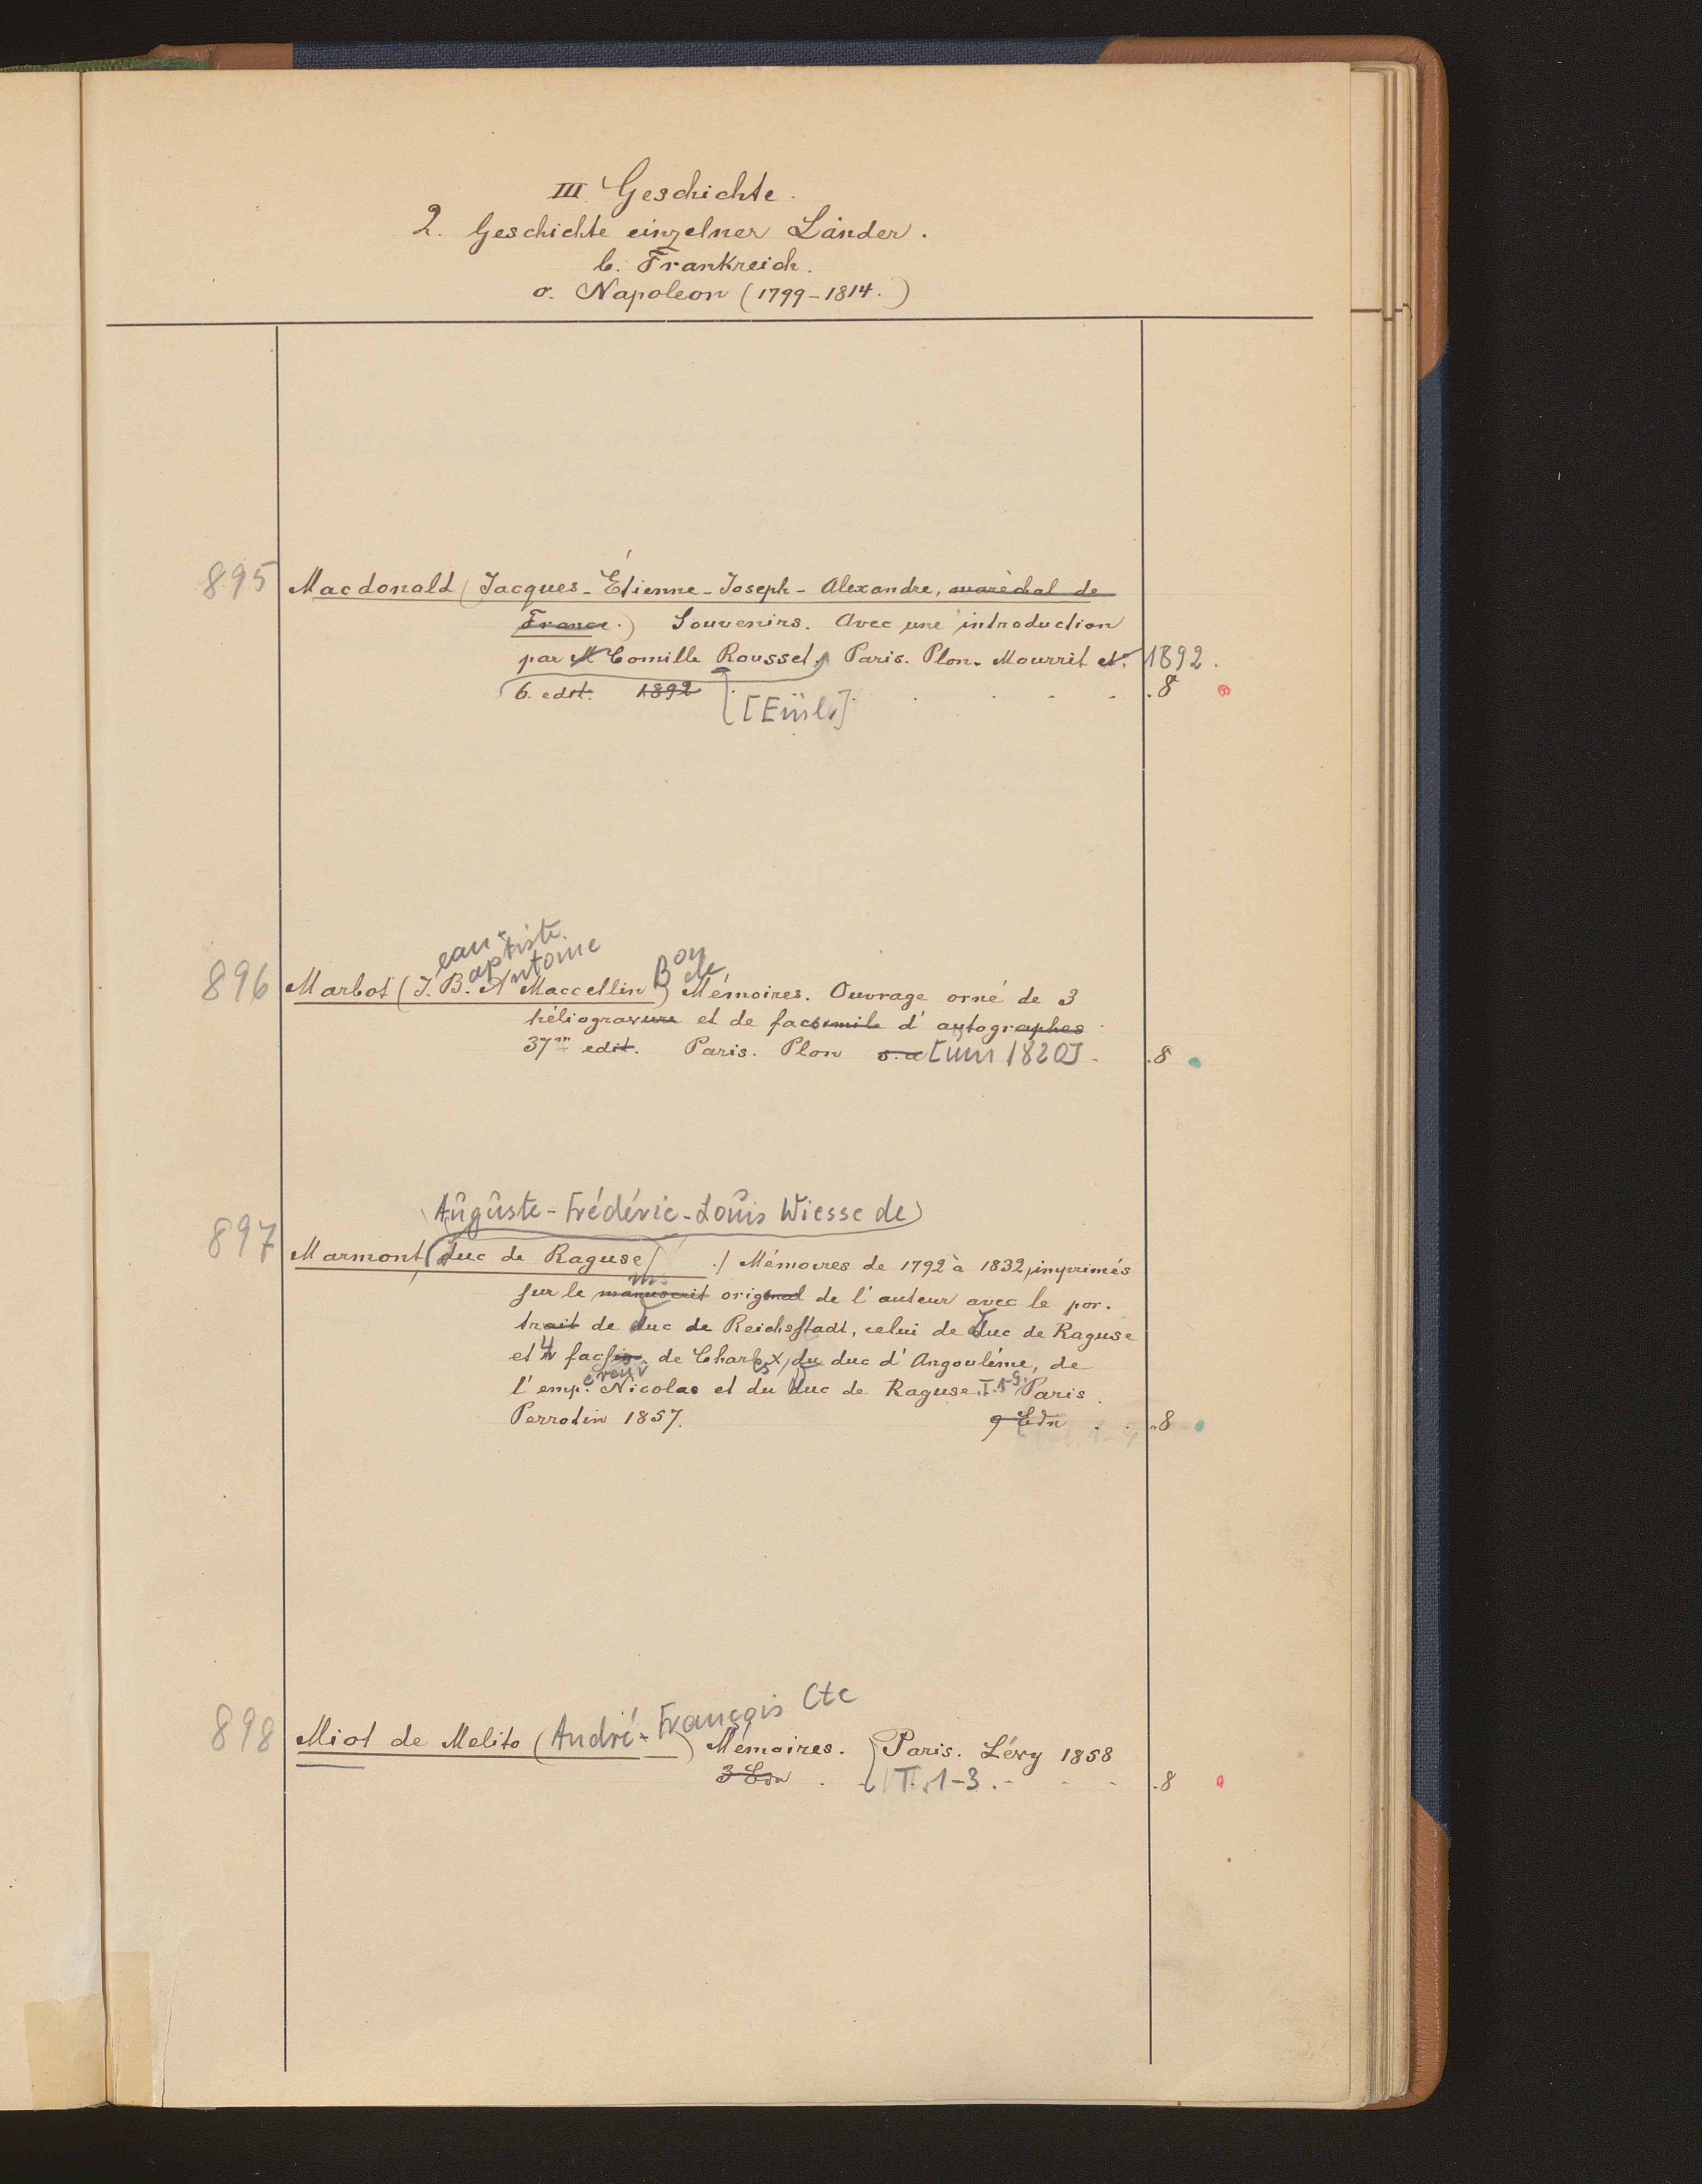 III Geschichte.
2. Geschichte einzelner Länder.
b. Frankreich.
σ. Napoleon (1799-1814.)
895 Macdonald (Jacques-Étienne-Joseph-Alexandre, maréchal de
France.) Souvenirs. Avec une introduction
par M Camille Rousset. Paris. Plon. Mourrit et. 1892.
6. edit. 1892 . . . . 8
[Einl.]
ean- aptiste. ntoine on de
896 Marbot (J. B. A Maccellin B) Mémoires. Ouvrage orné de 3
héliogravure et de facsimile d'autographes
37m edit. Paris. Plon s. a [um 1820] . 8
Auguste-Frédéric-Louis Wiesse de
897 Marmont (duc de Raguse) Mémoires de 1792 à 1832, imprimés
ms
sur le manuscrit original de l'auteur avec le por-
trait de duc de Reichsstadt, celui de duc de Raguse
et 4 facsim. de Charles X, du duc d'Angoulême, de
l'emp. Nicolas et du duc de Raguse. T. 1-9. Paris.
Perrotin 1857. 9 Bdn . . 8
François Cte
898 Miot de Melito (André-) Mémoires. Paris. Lévy 1858
3 Bdn . . T. 1-3. . . . 8